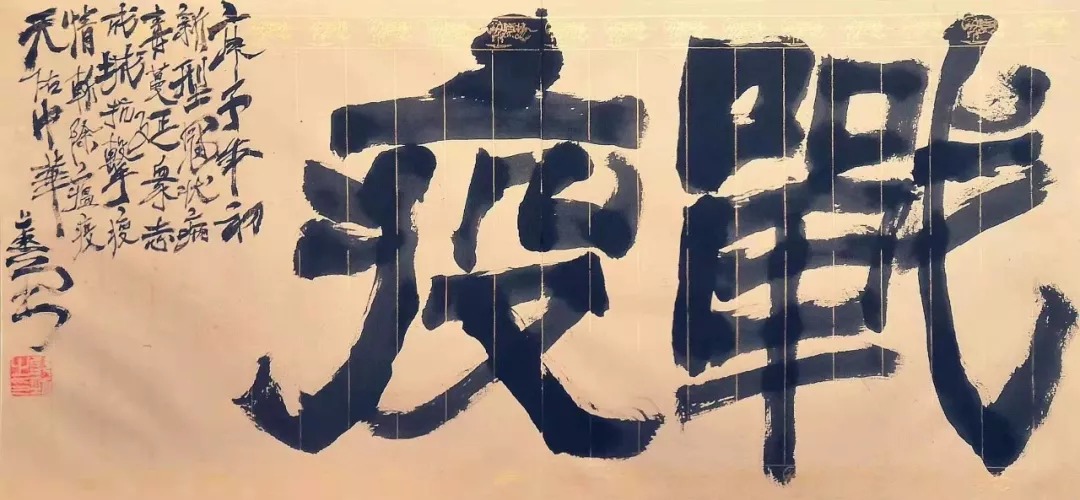 戰疫
庚子年初
新型冠状病
毒蔓延衆志
成城抗擊疫
情斬除瘟疫
天佑中華